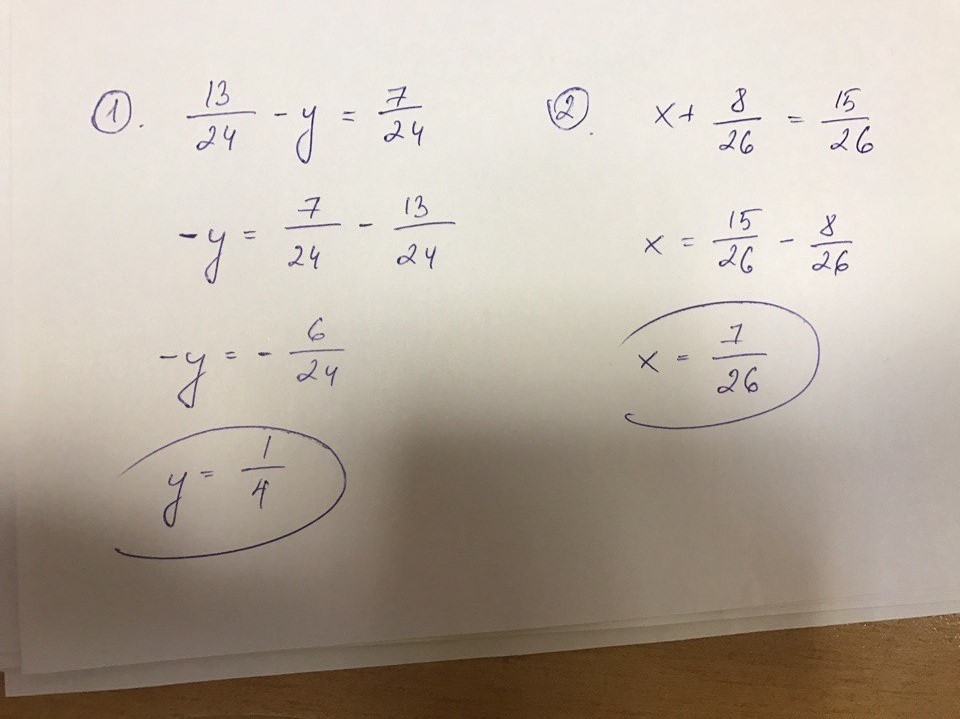 1. 13/24 - y = 7/24
-y = 7/24 - 13/24
-y = - 6/24
y = 1/4
2. x + 8/26 = 15/26
x = 15/26 - 8/26
x = 7/26